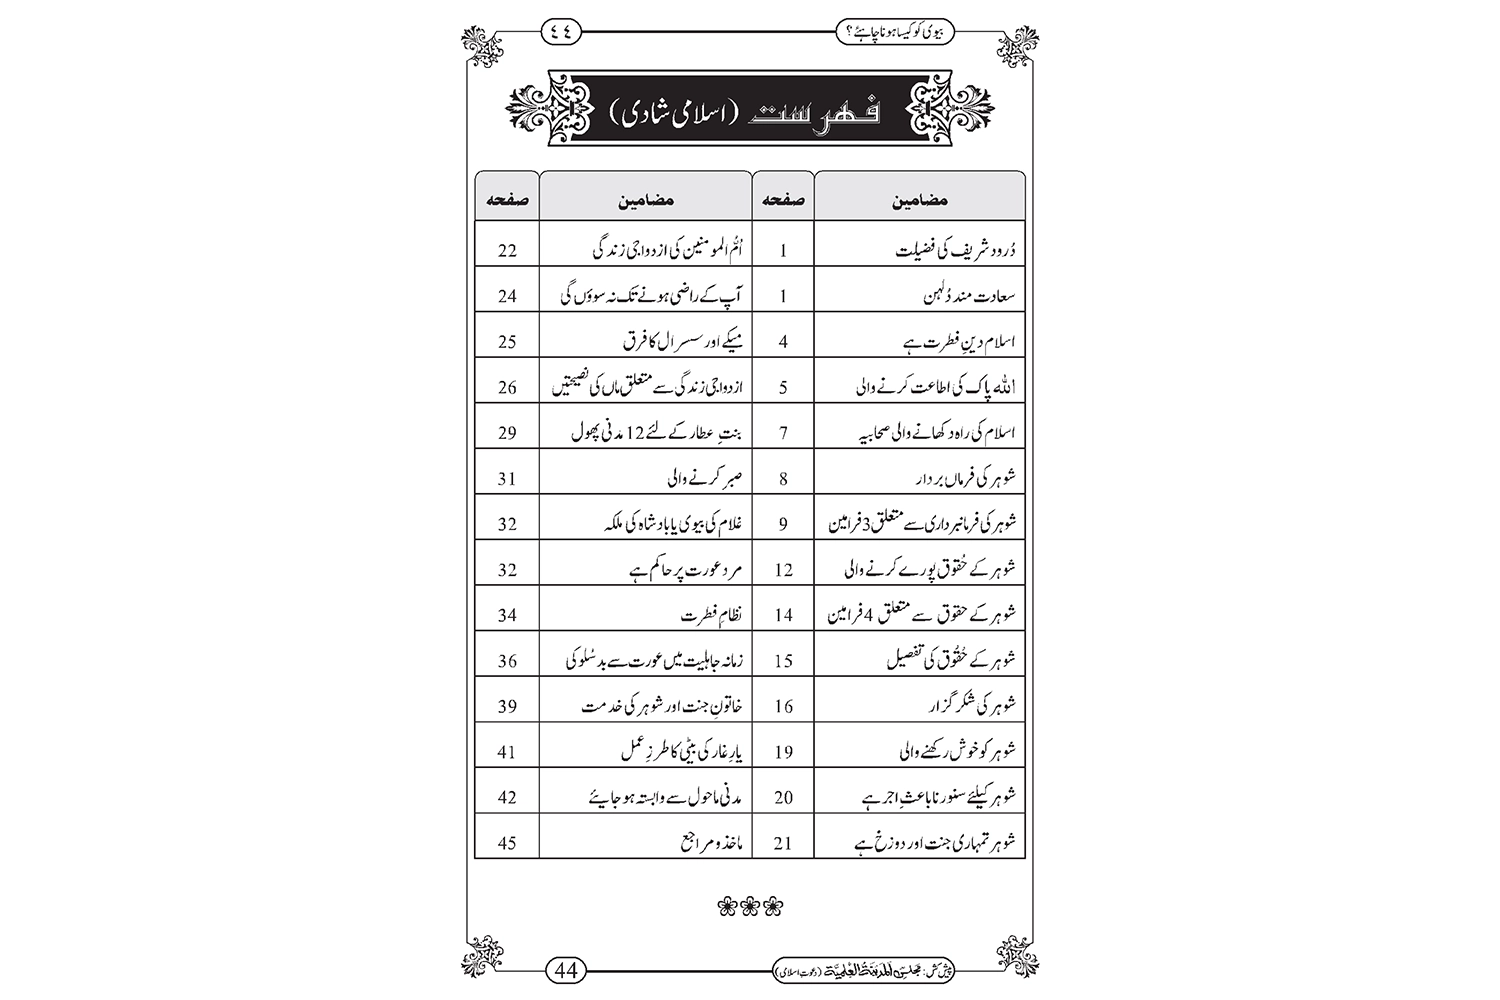 بیوی کو کیسا ہونا چاہئے؟ ٤٤
فہرست (اسلامی شادی)
مضامین صفحہ مضامین صفحہ
دُرود شریف کی فضیلت 1 اُمُّ المومنین کی ازدواجی زندگی 22
سعادت مند دُلہن 1 آپ کے راضی ہونے تک نہ سوؤں گی 24
اسلام دینِ فطرت ہے 4 میکے اور سسرال کا فرق 25
اللہ پاک کی اطاعت کرنے والی 5 ازدواجی زندگی سے متعلق ماں کی نصیحتیں 26
اسلام کی راہ دکھانے والی صحابیہ 7 بنتِ عطار کے لئے 12 مدنی پھول 29
شوہر کی فرماں بردار 8 صبر کرنے والی 31
شوہر کی فرمانبرداری سے متعلق 3 فرامین 9 غلام کی بیوی یا بادشاہ کی ملکہ 32
شوہر کے حُقوق پورے کرنے والی 12 مرد عورت پر حاکم ہے 32
شوہر کے حقوق سے متعلق 4 فرامین 14 نظامِ فطرت 34
شوہر کے حُقُوق کی تفصیل 15 زمانہ جاہلیت میں عورت سے بدسُلوکی 36
شوہر کی شکر گزار 16 خاتونِ جنت اور شوہر کی خدمت 39
شوہر کو خوش رکھنے والی 19 یارِ غار کی بیٹی کا طرزِ عمل 41
شوہر کیلئے سنورنا باعثِ اجر ہے 20 مدنی ماحول سے وابستہ ہو جایئے 42
شوہر تمہاری جنت اور دوزخ ہے 21 ماخذ و مراجع 45
پیش کش: مجلس المدینۃ العلمیۃ (دعوتِ اسلامی) 44